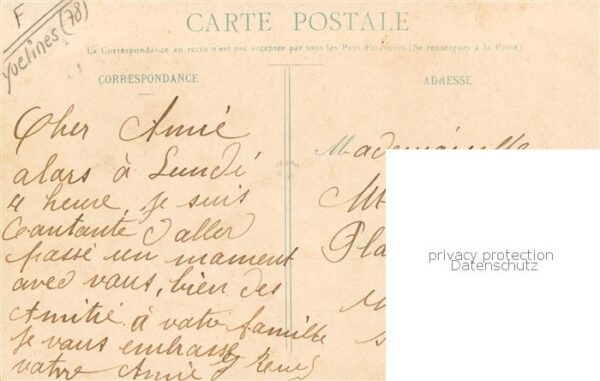 F
Yvelines (78)
CARTE POSTALE
La Correspondance au recto n'est pas acceptée par tous les Pays Etrangers (Se renseigner à la Poste)
CORRESPONDANCE
ADRESSE
Cher Amié
alars à Lundi
4 heure, je suis
Contante d'aller
passé un mament
avec vaus, bien des
Amitié à vatre famille
je vaus embrasse
vatre Amie
Mademoiselle
Pla
privacy protection
Datenschutz